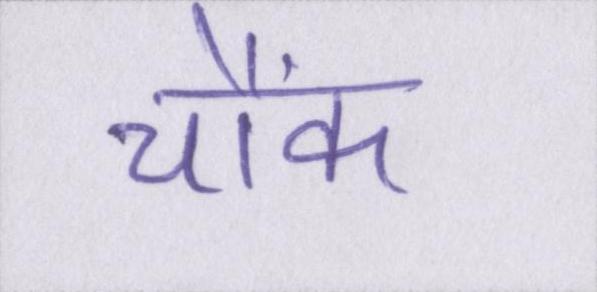 चौंक